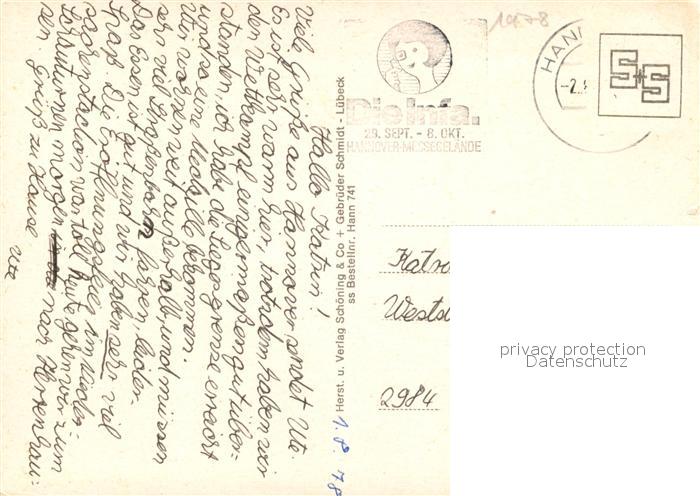 Hallo Katrin!
Viele Grüße aus Hannover sendet Ute.
Es ist sehr warm hier, trotzdem haben wir
den Wettkampf einigermaßen gut über-
standen, ich habe die Siegergrenze erreicht
und so eine Medaille bekommen.
Wir wohnen weit außerhalb und müssen
sehr viel Straßenbahn fahren, leider.
Das Essen ist gut und wir haben sehr viel
Spaß. Die Eröffnungsfeier im Nieder-
sachenstadion war toll. Heute gehen wir zum
Schauturnen morgen nach Herrenhau-
sen. Grüß zu Hause
Ute
Herst. u. Verlag Schöning & Co + Gebrüder Schmidt - Lübeck
ss Bestellnr. Hann 741
1978
Die Infa.
29. SEPT. - 8. OKT.
HANNOVER-MESSEGELÄNDE
HAN
-2.
S+S
Katr
Westd
2984
1.8.78
privacy protection
Datenschutz